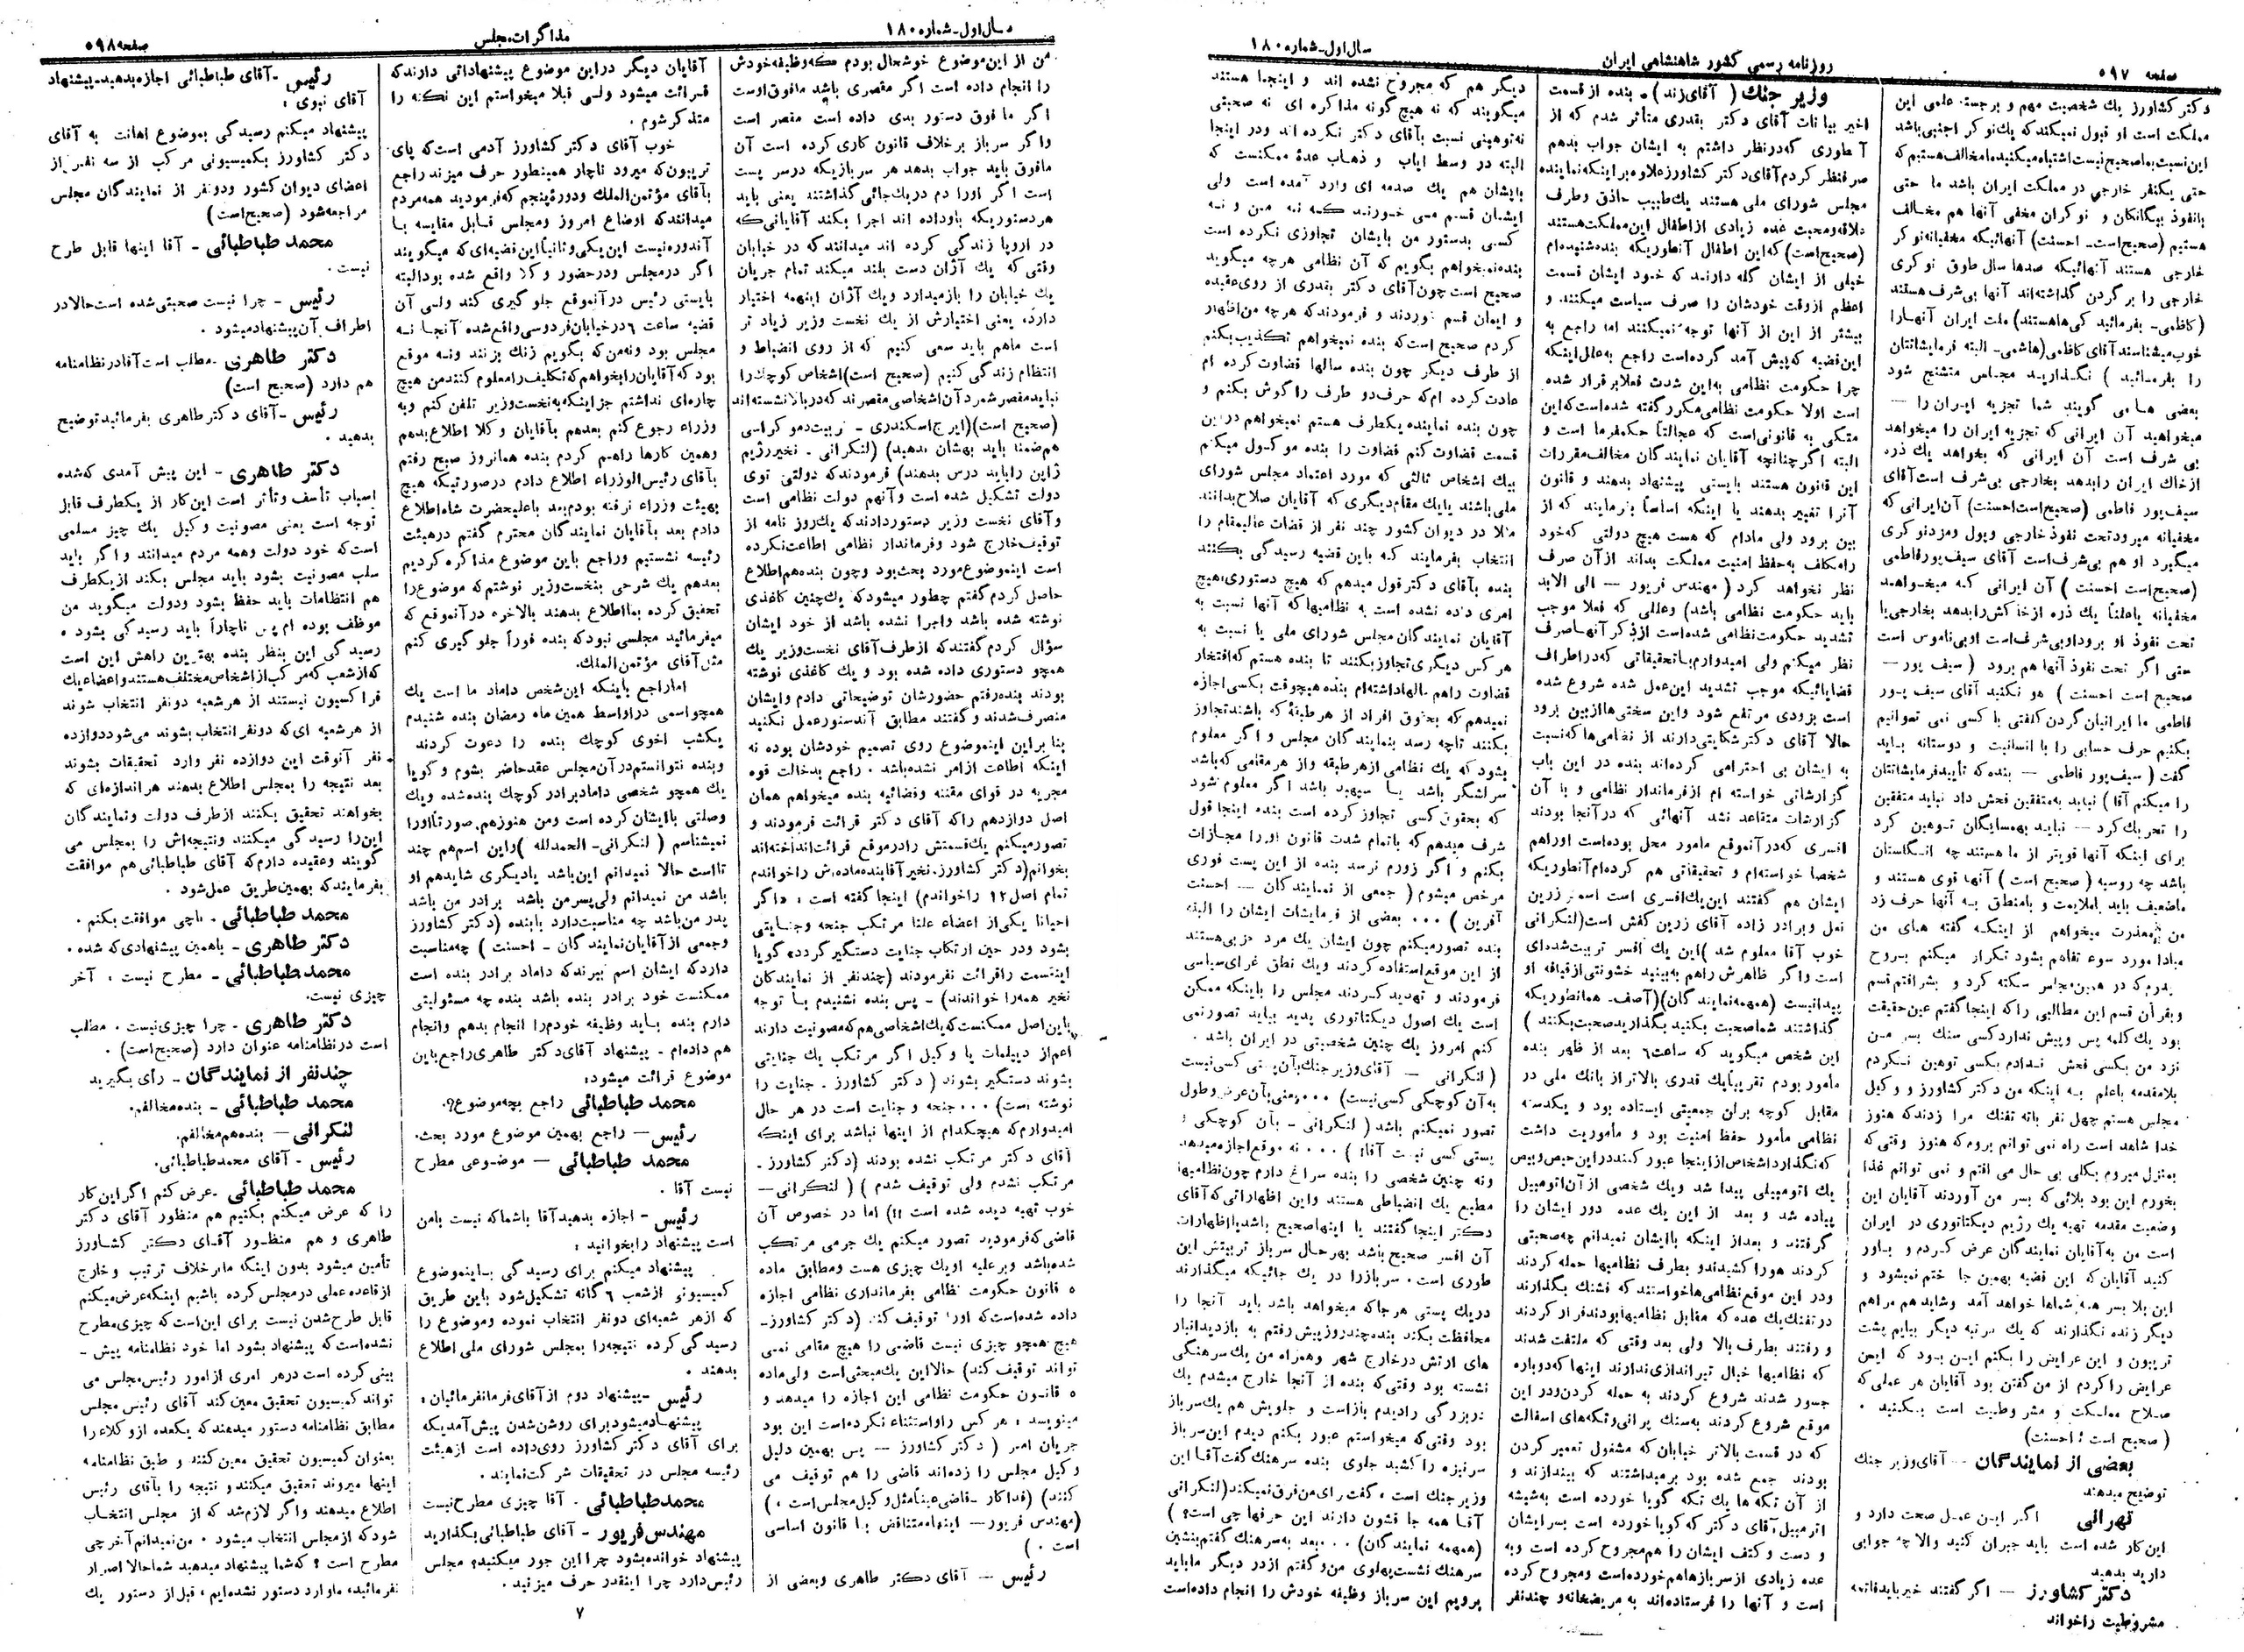 صفحه ۵۹۷
روزنامه رسمی کشور شاهنشاهی ایران
سال اول-شماره ۱۸۰
دکتر کشاورز یك شخصیت مهم و برجسته علمی این
مملکت است او قبول نمیکند که یك نوکر اجنبی باشد
این نسبت بما صحیح نیست اشتباه میکنید ما مخالف هستیم که
حتی یکنفر خارجی در مملکت ایران باشد ما حتی
با نفوذ بیگانگان و نوکران مخفی آنها هم مخالف
هستیم (صحیح است- احسنت) آنهائیکه مخفیانه نوکر
خارجی هستند آنهائیکه صدها سال طوق نوکری
خارجی را بر گردن گذاشته‌اند آنها بی‌شرف هستند
(کاظمی- بفرمائید کی‌ها هستند) ملت ایران آنها را
خوب میشناسند آقای کاظمی (هاشمی- البته فرمایشاتتان
را بفرمائید ) نگذارید مجلس متشنج شود
بعضی ها می گویند شما تجزیه ایران را —
میخواهید آن ایرانی که تجزیه ایران را میخواهد
بی شرف است آن ایرانی که بخواهد یك ذره
از خاك ایران را بدهد بخارجی بی‌شرف است آقای
سیف‌پور فاطمی (صحیح است احسنت) آن ایرانی که
مخفیانه میرود تحت نفوذ خارجی و پول و مزد نوکری
میگیرد او هم بی‌شرف است آقای سیف‌پور فاطمی
(صحیح است احسنت ) آن ایرانی که میخواهد
مخفیانه یا علناً یك ذره از خاکش را بدهد بخارجی یا
تحت نفوذ او برود او بی‌شرف است او بی‌ناموس است
حتی اگر تحت نفوذ آنها هم برود ( سیف پور —
صحیح است احسنت ) هو نکنید آقای سیف پور
فاطمی ما ایرانیان گردن کلفتی با کسی نمی توانیم
بکنیم حرف حسابی را با انسانیت و دوستانه باید
گفت ( سیف‌پور فاطمی — بنده که تأیید فرمایشاتتان
را میکنم آقا ) نباید به متفقین فحش داد نباید متفقین
را تحریك کرد — نباید بهمسایگان توهین کرد
برای اینکه آنها قویتر از ما هستند چه انگلستان
باشد چه روسیه ( صحیح است ) آنها قوی هستند و
ما ضعیف باید با ملایمت و با منطق به آنها حرف زد
من معذرت میخواهم از اینکه گفته های من
مبادا مورد سوء تفاهم بشود تکرار میکنم بروح
پدرم که در همین مجلس سکته کرد و بشرافتم قسم
و بقرآن قسم این مطالبی را که اینجا گفتم عین حقیقت
بود یك کلمه پس و پیش ندارد کسی سنك بسر من
نزد من بکسی فحش ندادم بکسی توهین نکردم
بلا مقدمه با علم به اینکه من دکتر کشاورز و وکیل
مجلس هستم چهل نفر با ته تفنك مرا زدند که هنوز
خدا شاهد است راه نمی توانم بروم که هنوز وقتی که
بمنزل میروم بکلی بی حال می افتم و نمی توانم غذا
بخورم این بود بلائی که بسر من آوردند آقایان این
وضعیت مقدمه تهیه یك رژیم دیکتاتوری در ایران
است من به آقایان نمایندگان عرض کردم و باور
کنید آقایان که این قضیه بهمین جا ختم نمیشود و
این بلا بسر همه شماها خواهد آمد و شاید هم مرا هم
دیگر زنده نگذارند که یك مرتبه دیگر بیایم پشت
تریبون و این عرایض را بکنم این بود که این
عرایض را کردم از من گفتن بود آقایان هر عملی که
صلاح مملکت و مشروطیت است بکنید .
( صحیح است ؛ احسنت)
بعضی از نمایندگان — آقای وزیر جنك
توضیح میدهند
تهرانی   اگر این عمل صحت دارد و
این کار شده است باید جبران کنید والا چه جوابی
دارید بدهید
دکتر کشاورز — اگر گفتند خیر باید فاتحه
مشروطیت را خواند
وزیر جنك ( آقای زند) . بنده از قسمت
اخیر بیانات آقای دکتر بقدری متأثر شدم که از
آنطوری که در نظر داشتم به ایشان جواب بدهم
صرفنظر کردم آقای دکتر کشاورز علاوه بر اینکه نماینده
مجلس شورای ملی هستند یك طبیب حاذق و طرف
علاقه و محبت عده زیادی از اطفال این مملکت هستند
(صحیح است) که این اطفال آنطوریکه بنده شنیده‌ام
خیلی از ایشان گله دارند که خود ایشان قسمت
اعظم از وقت خودشان را صرف سیاست میکنند و
بیشتر از این از آنها توجه نمیکنند اما راجع به
این قضیه که پیش آمد کرده است راجع به علل اینکه
چرا حکومت نظامی به این شدت فعلا برقرار شده
است اولا حکومت نظامی مکرر گفته شده است که این
متکی به قانونی است که عجالتاً حکمفرما است و
البته اگر چنانچه آقایان نمایندگان مخالف مقررات
این قانون هستند بایستی پیشنهاد بدهند و قانون
آنرا تغییر بدهند یا اینکه اساساً بفرمایند که از
بین برود ولی مادام که هست هیچ دولتی که خود
را مکلف به حفظ امنیت مملکت بداند از آن صرف
نظر نخواهد کرد ( مهندس فریور — الی الابد
باید حکومت نظامی باشد) و عللی که فعلا موجب
تشدید حکومت نظامی شده است از ذکر آنها صرف
نظر میکنم ولی امیدوارم با تحقیقاتی که در اطراف
قضایائیکه موجب تشدید این عمل شده شروع شده
است بزودی مرتفع شود و این سختی‌ها از بین برود
حالا آقای دکتر شکایتی دارند از نظامی‌ها که نسبت
به ایشان بی احترامی کرده‌اند بنده در این باب
گزارشاتی خواسته ام از فرماندار نظامی و با آن
گزارشات متقاعد نشد آنهائی که در آنجا بودند
افسری که در آنموقع مامور محل بوده است او را هم
شخصا خواسته‌ام و تحقیقاتی هم کرده‌ام آنطوریکه
ایشان هم گفتند این یك افسری است اسمر زرین
نعل و برادر زاده آقای زرین کفش است (لنکرانی
خوب آقا معلوم شد )این یك افسر تربیت شده‌ای
است و اگر ظاهرش را هم به‌بینید خشونتی از قیافه او
پیدا نیست (همهمه نمایندگان) (آصف- همانطوریکه
گذاشتند شما صحبت بکنید بگذارید صحبت بکنند )
این شخص میگوید که ساعت ۶ بعد از ظهر بنده
مأمور بودم تقریباً یك قدری بالاتر از بانك ملی در
مقابل کوچه برلن جمعیتی ایستاده بود و یکدسته
نظامی مأمور حفظ امنیت بود و مأموریت داشت
که نگذارد اشخاص از اینجا عبور کنند در این حیص و بیص
یك اتومبیلی پیدا شد و یك شخصی از آن اتومبیل
پیاده شد و بعد از این یك عده دور ایشان را
گرفتند و بعد از اینکه با ایشان نمیدانم چه صحبتی
کردند هورا کشیدند و بطرف نظامیها حمله کردند
و در این موقع نظامی‌ها خواستند که فشنگ بگذارند
در تفنك یك عده که مقابل نظامیها بودند فرار کردند
و رفتند بطرف بالا ولی بعد وقتی که ملتفت شدند
که نظامیها خیال تیر اندازی ندارند اینها که دوباره
جسور شدند شروع کردند به حمله کردن و در این
موقع شروع کردند به سنك پرانی و تکه‌های اسفالت
که در قسمت بالاتر خیابان که مشغول تعمیر کردن
بودند جمع شده بود برمیداشتند که بیندازند و
از آن تکه ها یك تکه گویا خورده است به شیشه
اتومبیل آقای دکتر که گویا خورده است بسر ایشان
و دست و کتف ایشان را هم مجروح کرده است و به
عده زیادی از سربازها هم خورده است و مجروح کرده
است و آنها را فرستاده‌اند به مریضخانه و چند نفر
دیگر هم که مجروح نشده اند و اینجا هستند
میگویند که نه هیچ گونه مذاکره ای نه صحبتی
نه توهینی نسبت بآقای دکتر نکرده اند و در اینجا
البته در وسط ایاب و ذهاب عدۀ ممکنست که
بایشان هم یك صدمه ای وارد آمده است ولی
ایشان قسم می خورند که نه من و نه
کسی بدستور من بایشان تجاوزی نکرده است
بنده نمیخواهم بگویم که آن نظامی هرچه میگوید
صحیح است چون آقای دکتر بقدری از روی عقیده
و ایمان قسم خوردند و فرمودند که هر چه من اظهار
کردم صحیح است که بنده نمیخواهم تکذیب بکنم
از طرف دیگر چون بنده سالها قضاوت کرده ام
عادت کرده ام که حرف دو طرف را گوش بکنم و
چون بنده نماینده یکطرف هستم نمیخواهم در این
قسمت قضاوت کنم قضاوت را بنده موکول میکنم
بیك اشخاص ثالثی که مورد اعتماد مجلس شورای
ملی باشند یا یك مقام دیگری که آقایان صلاح بدانند
مثلا در دیوان کشور چند نفر از قضات عالیمقام را
انتخاب بفرمایند که باین قضیه رسیدگی بکنند
بنده بآقای دکتر قول میدهم که هیچ دستوری هیچ
امری داده نشده است به نظامیها که آنها نسبت به
آقایان نمایندگان مجلس شورای ملی یا نسبت به
هر کس دیگری تجاوز بکنند تا بنده هستم که افتخار
قضاوت را هم سالها داشته‌ام بنده هیچوقت بکسی اجازه
نمیدهم که بحقوق افراد از هر طبقۀ که باشند تجاوز
بکنند تا چه رسد بنمایندگان مجلس و اگر معلوم
بشود که یك نظامی از هر طبقه و از هر مقامی که باشد
سرلشگر باشد یا سپهبد باشد اگر معلوم شود
که بحقوق کسی تجاوز کرده است بنده اینجا قول
شرف میدهم که باتمام شدت قانون او را مجازات
بکنم و اگر زورم نرسد بنده از این پست فوری
مرخص میشوم ( جمعی از نمایندگان — احسنت
آفرین ) ... بعضی از فرمایشات ایشان را البته
بنده تصور میکنم چون ایشان یك مرد حزبی هستند
از این موقع استفاده کردند و یك نطق غرای سیاسی
فرمودند و تهدید کردند مجلس را باینکه ممکن
است یك اصول دیکتاتوری پدید بیاید تصور نمی
کنم امروز یك چنین شخصیتی در ایران باشد .
( لنکرانی — آقای وزیر جنك بآن پستی کسی نیست
به آن کوچکی کسی نیست) ... یعنی بآن عرض و طول
تصور نمیکنم باشد ( لنکرانی - بآن کوچکی ؛
پستی کسی نیست آقا! ) ... نه موقع اجازه میدهد
و نه چنین شخصی را بنده سراغ دارم چون نظامیها
مطیع یك انضباطی هستند و این اظهاراتی که آقای
دکتر اینجا گفتند یا اینها صحیح باشد یا اظهارات
آن افسر صحیح باشد بهرحال سرباز تربیتش این
طوری است . سرباز را در یك جائیکه میگذارند
در یك پستی هر جا که میخواهد باشد باید آنجا را
محافظت بکند بنده چند روز پیش رفتم به بازدید انبار
های ارتش در خارج شهر و همراه من یك سرهنگی
نشسته بود وقتی که بنده از آنجا خارج میشدم یك
در بزرگی را دیدم باز است و جلویش هم یك سرباز
بود وقتی که میخواستم عبور بکنم دیدم این سرباز
سرنیزه را کشید جلوی بنده سرهنك گفت آقا این
وزیر جنك است ، گفت برای من فرق نمیکند (لنکرانی
آقا همه جا قشون دارند این حرفها چی است؟ )
(همهمه نمایندگان) ... بعد به سرهنك گفتم بنشین
سرهنك نشست پهلوی من و گفتم از در دیگر ما باید
برویم این سرباز وظیفه خودش را انجام داده است
سال اول-شماره ۱۸۰
مذاکرات مجلس
صفحه ۵۹۸
من از این موضوع خوشحال بودم که وظیفه خودش
را انجام داده است اگر مقصری باشد مافوق اوست
اگر ما فوق دستور بدی داده است مقصر است
و اگر سرباز بر خلاف قانون کاری کرده است آن
مافوق باید جواب بدهد هر سربازیکه در سر پست
است اگر او را دم در یك جائی گذاشتند یعنی باید
هر دستوریکه باو داده اند اجرا بکند آقایانی که
در اروپا زندگی کرده اند میدانند که در خیابان
وقتی که یك آژان دست بلند میکند تمام جریان
یك خیابان را باز میدارد و یك آژان اینهمه اختیار
دارد، یعنی اختیارش از یك نخست وزیر زیاد تر
است ما هم باید سعی کنیم که از روی انضباط و
انتظام زندگی کنیم (صحیح است) اشخاص کوچك را
نباید مقصر شمرد آن اشخاصی مقصرند که در بالا نشسته‌اند
(صحیح است) (ایرج اسکندری - تربیت دموکراسی
هم ضمنا باید بهشان بدهید) (لنکرانی . نخیر رژیم
ژاپن را باید درس بدهند) فرمودند که دولتی توی
دولت تشکیل شده است و آنهم دولت نظامی است
و آقای نخست وزیر دستور دادند که یك روز نامه از
توقیف خارج شود و فرماندار نظامی اطاعت نکرده
است این موضوع مورد بحث بود و چون بنده هم اطلاع
حاصل کردم گفتم چطور میشود که یك چنین کاغذی
نوشته شده باشد و اجرا نشده باشد از خود ایشان
سؤال کردم گفتند که از طرف آقای نخست وزیر یك
همچو دستوری داده شده بود و یك کاغذی نوشته
بودند بنده رفتم حضورشان توضیحاتی دادم و ایشان
منصرف شدند و گفتند مطابق آن دستور عمل نکنید
بنا بر این این موضوع روی تصمیم خودشان بوده نه
اینکه اطاعت از امر نشده باشد . راجع بدخالت قوه
مجریه در قوای مقننه و قضائیه بنده میخواهم همان
اصل دوازدهم را که آقای دکتر قرائت فرمودند و
تصور میکنم یك قسمتش را در موقع قرائت انداخته‌اند
بخوانم (دکتر کشاورز. نخیر آقا بنده ماده‌ش را خواندم
تمام اصل ۱۲ را خواندم) اینجا گفته است : «اگر
احیانا یکی از اعضاء علنا مرتکب جنحه و جنایتی
بشود و در حین ارتکاب جنایت دستگیر گردد» گویا
اینقسمت را قرائت نفرمودند (چند نفر از نمایندگان
نخیر همه را خواندند) - پس بنده نشنیدم با توجه
باین اصل ممکنست که یك اشخاصی هم که مصونیت دارند
اعم از دیپلمات یا وکیل اگر مرتکب یك جنایتی
بشوند دستگیر بشوند ( دکتر کشاورز . جنایت را
نوشته است) ... جنحه و جنایت است در هر حال
امیدوارم که هیچکدام از اینها نباشد برای اینکه
آقای دکتر مرتکب نشده بودند (دکتر کشاورز -
مرتکب نشدم ولی توقیف شدم ) ( لنکرانی—
خوب تهیه دیده شده است !!) اما در خصوص آن
قاضی که فرمودید تصور میکنم یك جرمی مرتکب
شده باشد و بر علیه او یك چیزی هست و مطابق ماده
۵ قانون حکومت نظامی بفرمانداری نظامی اجازه
داده شده است که او را توقیف کند (دکتر کشاورز-
هیچ همچو چیزی نیست قاضی را هیچ مقامی نمی
تواند توقیف کند) حالا این یك مبحثی است ولی ماده
۵ قانون حکومت نظامی این اجازه را میدهد و
مینویسد : هر کس را و استثناء نکرده است این بود
جریان امر ( دکتر کشاورز — پس بهمین دلیل
وکیل مجلس را زده‌اند قاضی را هم توقیف می
کنند) (فداکار -قاضی عیناً مثل وکیل مجلس است ، )
(مهندس فریور— اینها متناقض با قانون اساسی
است . )
رئیس — آقای دکتر طاهری و بعضی از
آقایان دیگر در این موضوع پیشنهاداتی دارند که
قرائت میشود ولی قبلا میخواستم این نکته را
متذکر شوم .
خوب آقای دکتر کشاورز آدمی است که پای
تریبون که میرود ناچار همینطور حرف میزند راجع
بآقای مؤتمن‌الملك و دورۀ پنجم که فرمودید همه مردم
میدانند که اوضاع امروز و مجلس قابل مقایسه با
آن دوره نیست این یکی و ثانیاً این قضیه‌ای که میگویند
اگر در مجلس و در حضور وکلا واقع شده بود البته
بایستی رئیس در آنموقع جلوگیری کند ولی آن
قضیه ساعت ۶ در خیابان فردوسی واقع شده آنجا نه
مجلس بود و نه من که بگویم زنگ بزنند و نه موقع
بود که آقایان را بخواهم که تکلیف را معلوم کنند من هیچ
چاره‌ای نداشتم جز اینکه به نخست وزیر تلفن کنم و به
وزراء رجوع کنم بعدهم بآقایان وکلا اطلاع بدهم
و همین کارها را هم کردم بنده همانروز صبح رفتم
بآقای رئیس‌الوزراء اطلاع دادم در صورتیکه هیچ
بهیئت وزراء نرفته بودم بعد باعلیحضرت شاه اطلاع
دادم بعد بآقایان نمایندگان محترم گفتم در هیئت
رئیسه نشستیم و راجع باین موضوع مذاکره کردیم
بعدهم یك شرحی بنخست وزیر نوشتم که موضوع را
تحقیق کرده بما اطلاع بدهند بالاخره در آنموقع که
میفرمائید مجلسی نبود که بنده فوراً جلو گیری کنم
مثل آقای مؤتمن‌الملك.
اما راجع باینکه این شخص داماد ما است یك
همچو اسمی در اواسط همین ماه رمضان بنده شنیدم
یکشب اخوی کوچك بنده را دعوت کردند
و بنده نتوانستم در آن مجلس عقد حاضر بشوم و گویا
یك همچو شخصی داماد برادر کوچك بنده شده و یك
وصلتی با ایشان کرده است و من هنوزهم صورتاً او را
نمیشناسم ( لنکرانی- الحمدلله )و این اسم هم چند
تا است حالا نمیدانم این باشد یا دیگری شاید هم او
باشد من نمیدانم ولی پسر من باشد برادر من باشد
پدر من باشد چه مناسبت دارد بابنده (دکتر کشاورز
و جمعی از آقایان نمایندگان - احسنت ) چه مناسبت
دارد که ایشان اسم ببرند که داماد برادر بنده است
ممکنست خود برادر بنده باشد بنده چه مسئولیتی
دارم بنده باید وظیفه خودم را انجام بدهم و انجام
هم داده‌ام - پیشنهاد آقای دکتر طاهری راجع باین
موضوع قرائت میشود:
محمد طباطبائی راجع بچه موضوع؟.
رئیس— راجع بهمین موضوع مورد بحث.
محمد طباطبائی — موضوعی مطرح
نیست آقا .
رئیس - اجازه بدهید آقا باشما که نیست بامن
است پیشنهاد را بخوانید :
پیشنهاد میکنم برای رسیدگی باین موضوع
کمیسیونی از شعب ۶ گانه تشکیل شود باین طریق
که از هر شعبه‌ای دو نفر انتخاب نموده و موضوع را
رسیدگی کرده نتیجه را بمجلس شورای ملی اطلاع
بدهند .
رئیس -پیشنهاد دوم از آقای فرمانفرمائیان :
پیشنهاد میشود برای روشن شدن پیش آمدیکه
برای آقای دکتر کشاورز روی داده است از هیئت
رئیسه مجلس در تحقیقات شرکت نمایند .
محمد طباطبائی . آقا چیزی مطرح نیست
مهندس فریور - آقای طباطبائی بگذارید
پیشنهاد خوانده بشود چرا این جور میکنید؟ مجلس
رئیس دارد چرا اینقدر حرف میزنید .
رئیس -آقای طباطبائی اجازه بدهید-پیشنهاد
آقای نبوی :
پیشنهاد میکنم رسیدگی بموضوع اهانت به آقای
دکتر کشاورز بکمیسیونی مرکب از سه نفر از
اعضای دیوان کشور و دو نفر از نمایندگان مجلس
مراجعه شود (صحیح است)
محمد طباطبائی - آقا اینها قابل طرح
نیست .
رئیس - چرا نیست صحبتی شده است حالا در
اطراف آن پیشنهاد میشود .
دکتر طاهری -مطلب است آقا در نظامنامه
هم دارد (صحیح است)
رئیس -آقای دکتر طاهری بفرمائید توضیح
بدهید .
دکتر طاهری - این پیش آمدی که شده
اسباب تأسف و تأثر است این کار از یکطرف قابل
توجه است یعنی مصونیت وکیل یك چیز مسلمی
است که خود دولت و همه مردم میدانند و اگر باید
سلب مصونیت بشود باید مجلس بکند از یکطرف
هم انتظامات باید حفظ بشود و دولت میگوید من
موظف بوده ام پس ناچاراً باید رسیدگی بشود .
رسیدگی این بنظر بنده بهترین راهش این است
که از شعب که مرکب از اشخاص مختلف هستند و اعضاء یك
فراکسیون نیستند از هر شعبه دونفر انتخاب شوند
از هر شعبه ای که دو نفر انتخاب بشوند می‌شود دوازده
نفر آنوقت این دوازده نفر وارد تحقیقات بشوند
بعد نتیجه را بمجلس اطلاع بدهند هر اندازه‌ای که
بخواهند تحقیق بکنند از طرف دولت و نمایندگان
این را رسیدگی میکنند و نتیجه‌اش را بمجلس می
گویند و عقیده دارم که آقای طباطبائی هم موافقت
بفرمایند که بهمین طریق عمل شود .
محمد طباطبائی . باچی موافقت بکنم .
دکتر طاهری - باهمین پیشنهادی که شده .
محمد طباطبائی - مطرح نیست ، آخر
چیزی نیست.
دکتر طاهری - چرا چیزی نیست . مطلب
است در نظامنامه عنوان دارد (صحیح است) .
چند نفر از نمایندگان - رأی بگیرید
محمد طباطبائی - بنده مخالفم.
لنکرانی — بنده هم مخالفم.
رئیس - آقای محمد طباطبائی.
محمد طباطبائی -عرض کنم اگر این کار
را که عرض میکنم بکنیم هم منظور آقای دکتر
طاهری و هم منظور آقای دکتر کشاورز
تأمین میشود بدون اینکه ما بر خلاف ترتیب و خارج
از قاعده عملی در مجلس کرده باشیم اینکه عرض میکنم
قابل طرح شدن نیست برای این است که چیزی مطرح
نشده است که پیشنهاد بشود اما خود نظامنامه پیش -
بینی کرده است در هر امری از امور رئیس مجلس می
تواند کمیسیون تحقیق معین کند آقای رئیس مجلس
مطابق نظامنامه دستور میدهند که یکعده از وکلاء را
بعنوان کمیسیون تحقیق معین کنند و طبق نظامنامه
اینها میروند تحقیق میکنند و نتیجه را بآقای رئیس
اطلاع میدهند و اگر لازم شد که از مجلس انتخاب
شود که از مجلس انتخاب میشود . من نمیدانم آخر چی
مطرح است ؟ که شما پیشنهاد میدهید شما حالا اصرار
نفرمائید، ما وارد دستور نشده‌ایم ، قبل از دستور یك
۷